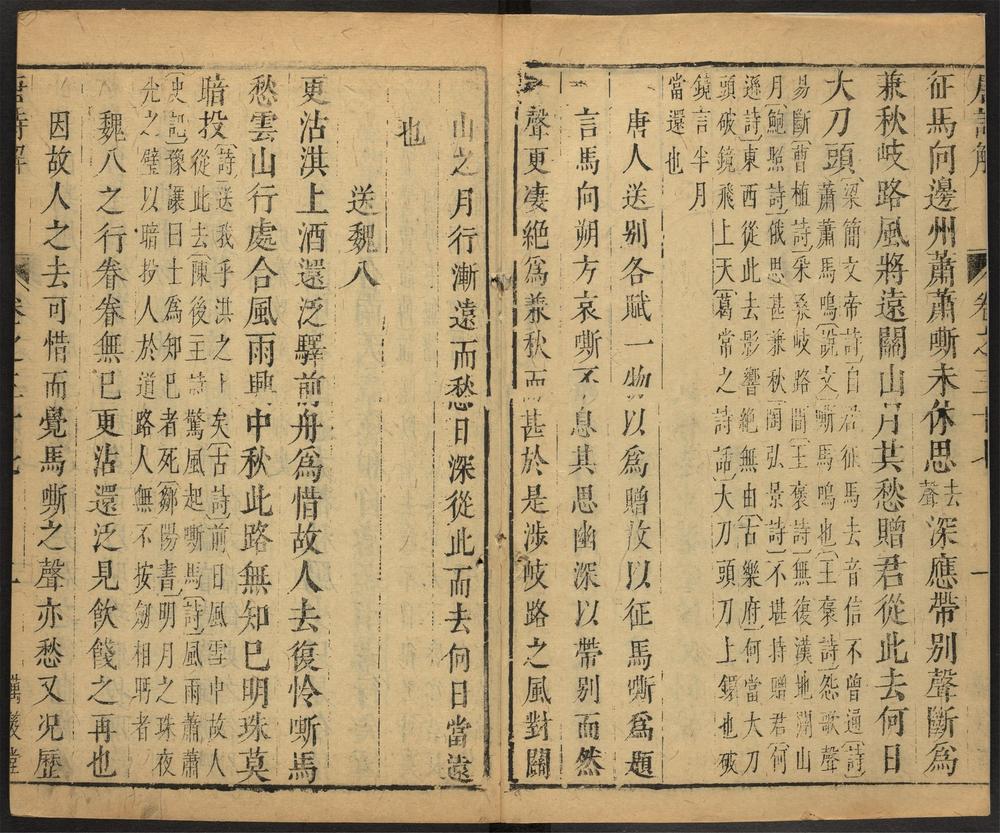 唐詩解　卷之三十七　一
征馬向邊州蕭蕭嘶未休思去聲深應帶别聲斷爲
兼秋岐路風將遠關山月共愁贈君從此去何日
大刀頭
梁簡文帝詩白君征馬去音信不曾逼詩
蕭蕭馬鳴說文嘶馬鳴也王褒詩怨歌聲
易斷曹植詩采桑岐路間王褒詩無復漢地關山
月鮑照詩俄思甚兼秋陶弘景詩不堪持贈君何
遜詩東西從此去影響絶無由古樂府何當大刀
頭破鏡飛上天葛常之詩話大刀頭刀上鐶也破
鏡言半月
當還也
唐人送别各賦一物以爲贈故以征馬嘶爲題
言馬向朔方哀嘶不息其思幽深以帶别而然
聲更凄絶爲兼秋而甚於是涉岐路之風對關
山之月行漸遠而愁日深從此而去何日當還
也
送魏八
更沽淇上酒還泛驛前舟爲惜故人去復怜嘶馬
愁雲山行處合風雨興中秋此路無知已明珠莫
暗投
詩送我乎淇之上矣古詩前日風雪中故人
從此去陳後主詩驚風起嘶馬詩風雨蕭蕭
史記豫讓曰士爲知巳者死鄒陽書明月之珠夜
光之璧以暗投人於道路人無不按劒相眄者
魏八之行眷眷無已更沽還泛見飲餞之再也
因故人之去可惜而覺馬嘶之聲亦愁又况歷
唐詩解　卷之三十七　一　萬笈堂